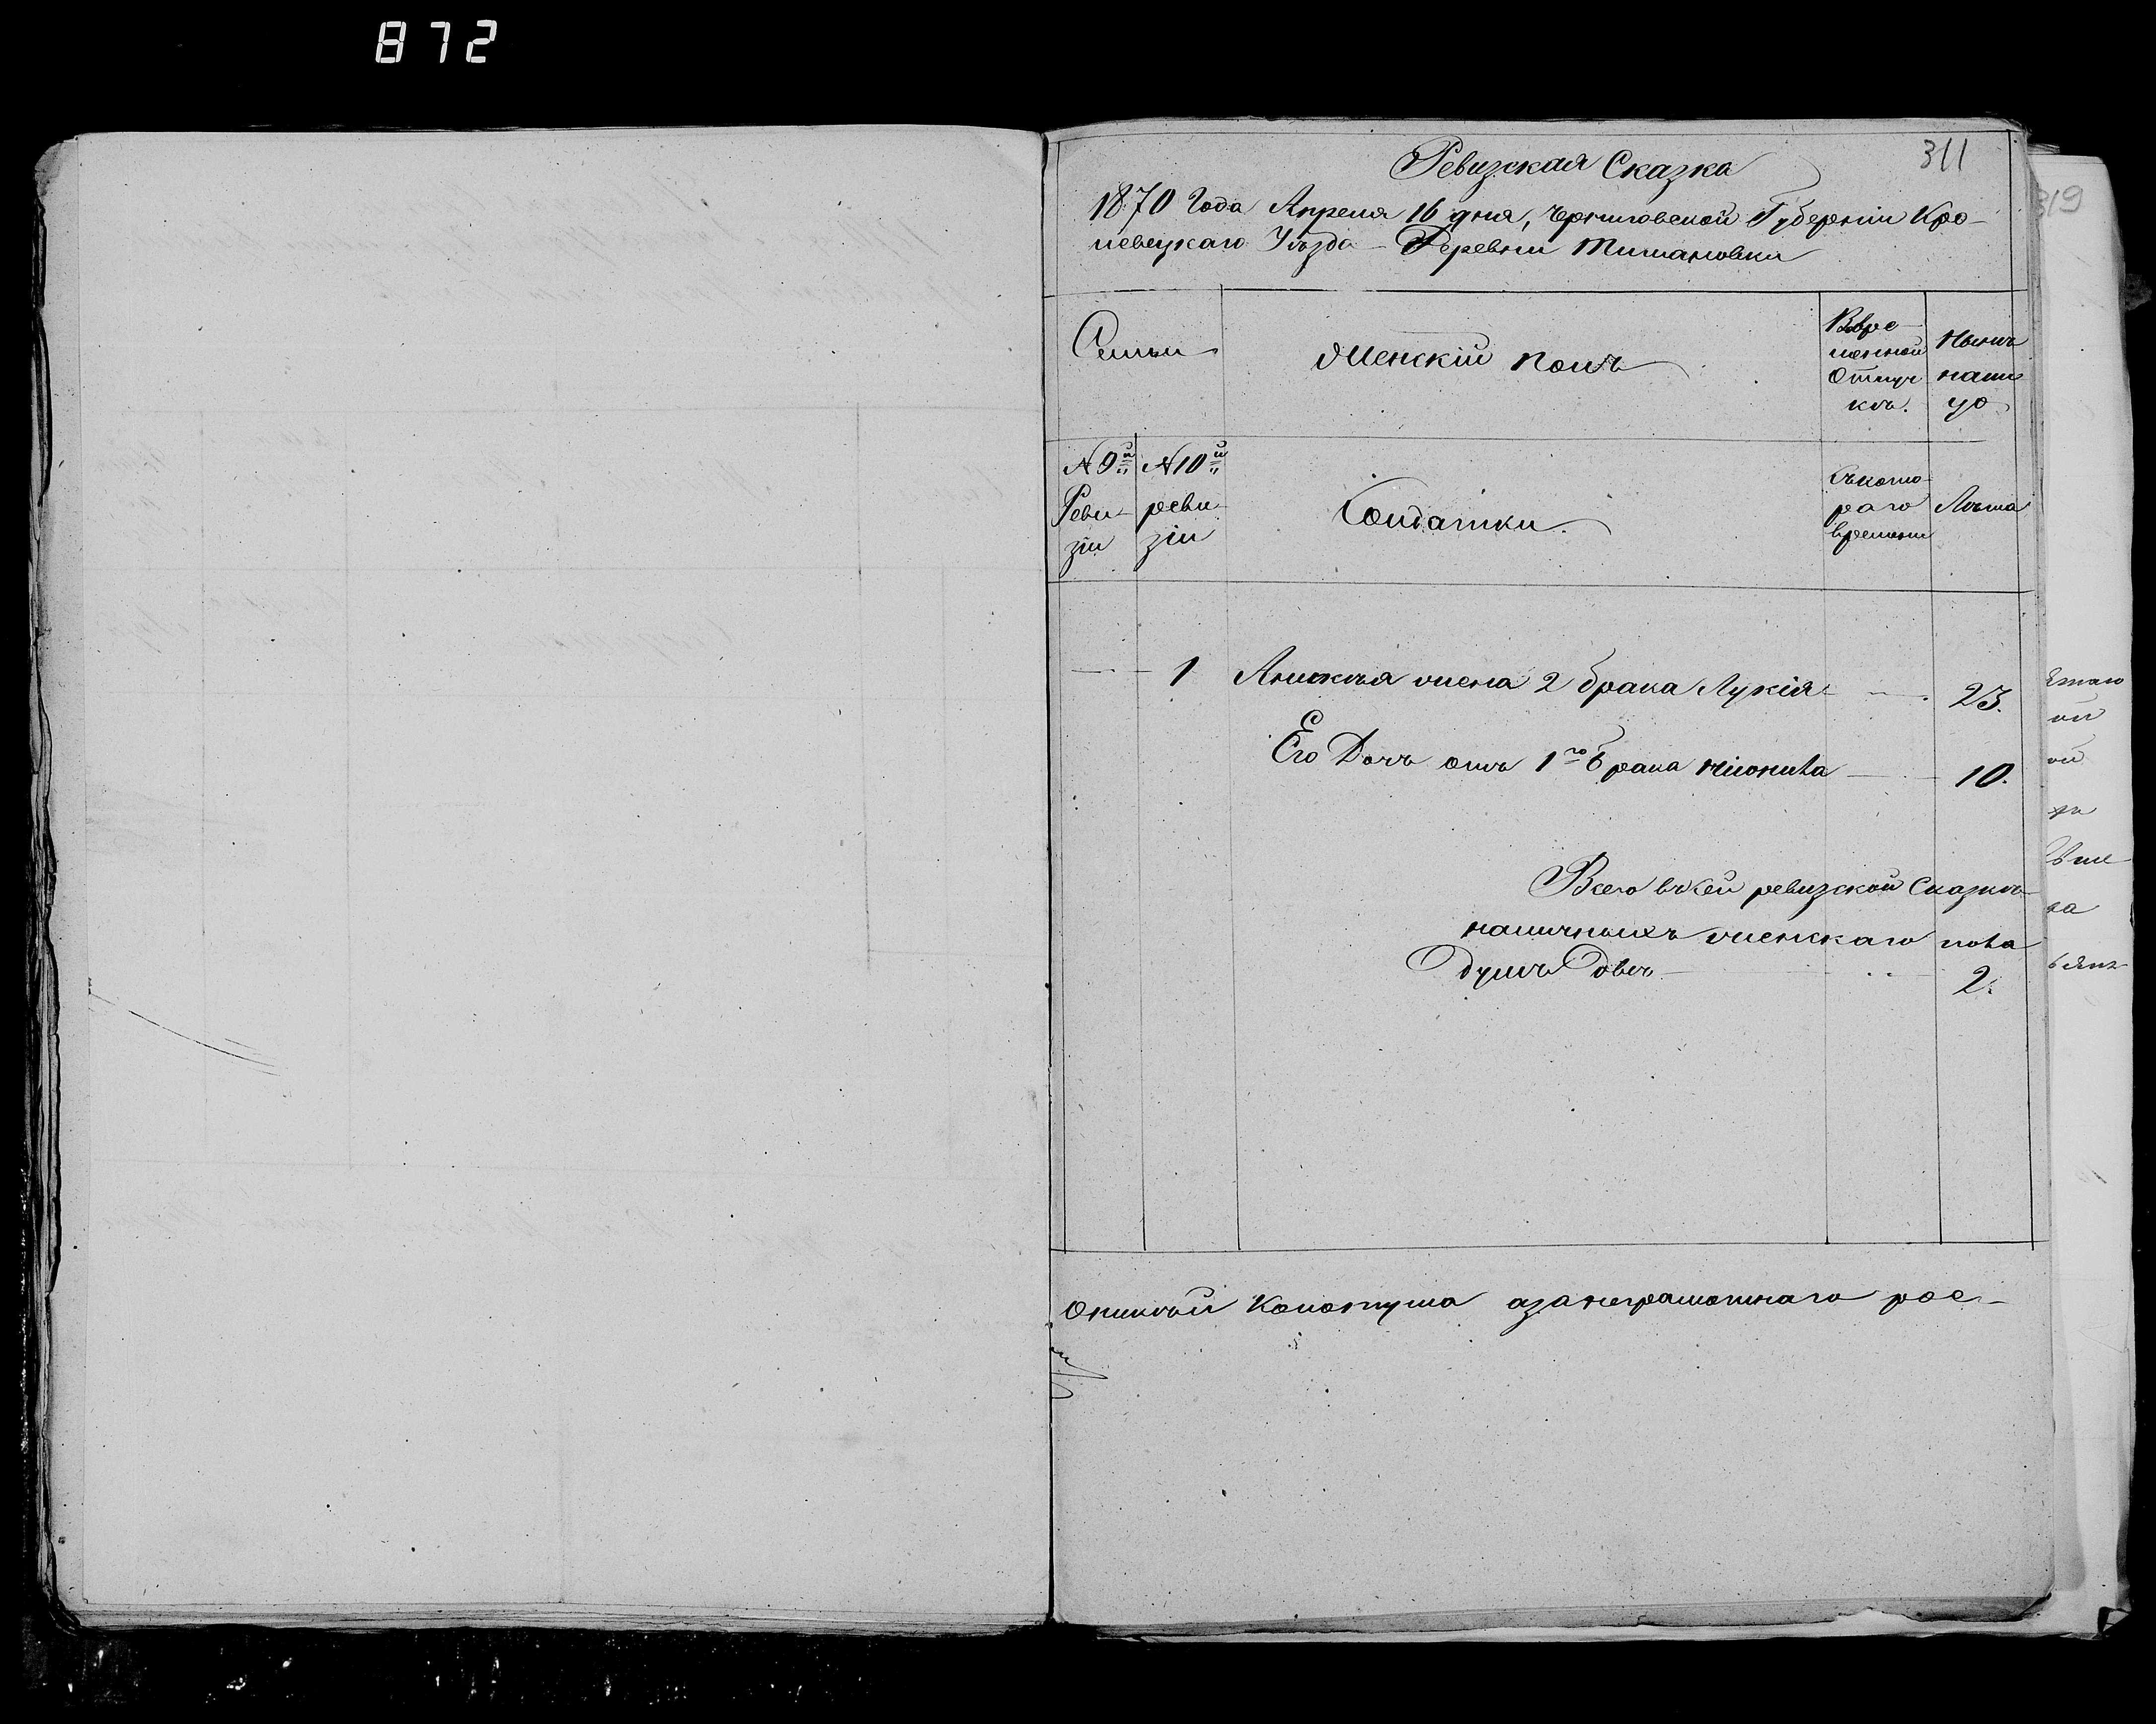 872
311
Ревизская Сказка
1870 Года Апреля 16 дня, Черниговской Губерніи Кро-
левецкаго Уѣзда Деревни Тимановки
Семьи
Женскій полъ
Ввре-
менной
Отлуч
кѣ.
Нынѣ
нали
цо
№ 9й
Реви-
зіи
№ 10й
реви-
зіи
Солдатки.
Съкото-
раго
времени
Лѣта
1 Аникѣя жена 2 брака Лукія 23.
Его Дочь отъ 1го брака 10.
Всего въ сей ревизской Сказкѣ
наличныхъ женскаго пола
Душъ Двѣ 2.
Оникѣй Конотуша азанеграмотнаго рос-
319